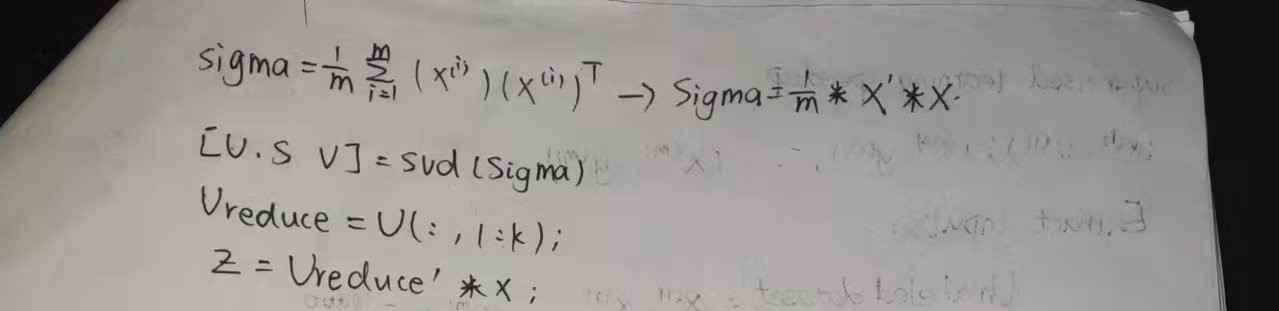 sigma = 1/m ∑_{i=1}^{m} (x^(i)) (x^(i))^T → Sigma = 1/m * X' * X.
[U.S V] = svd (Sigma)
Ureduce = U(: , 1:k);
Z = Ureduce' * x ;